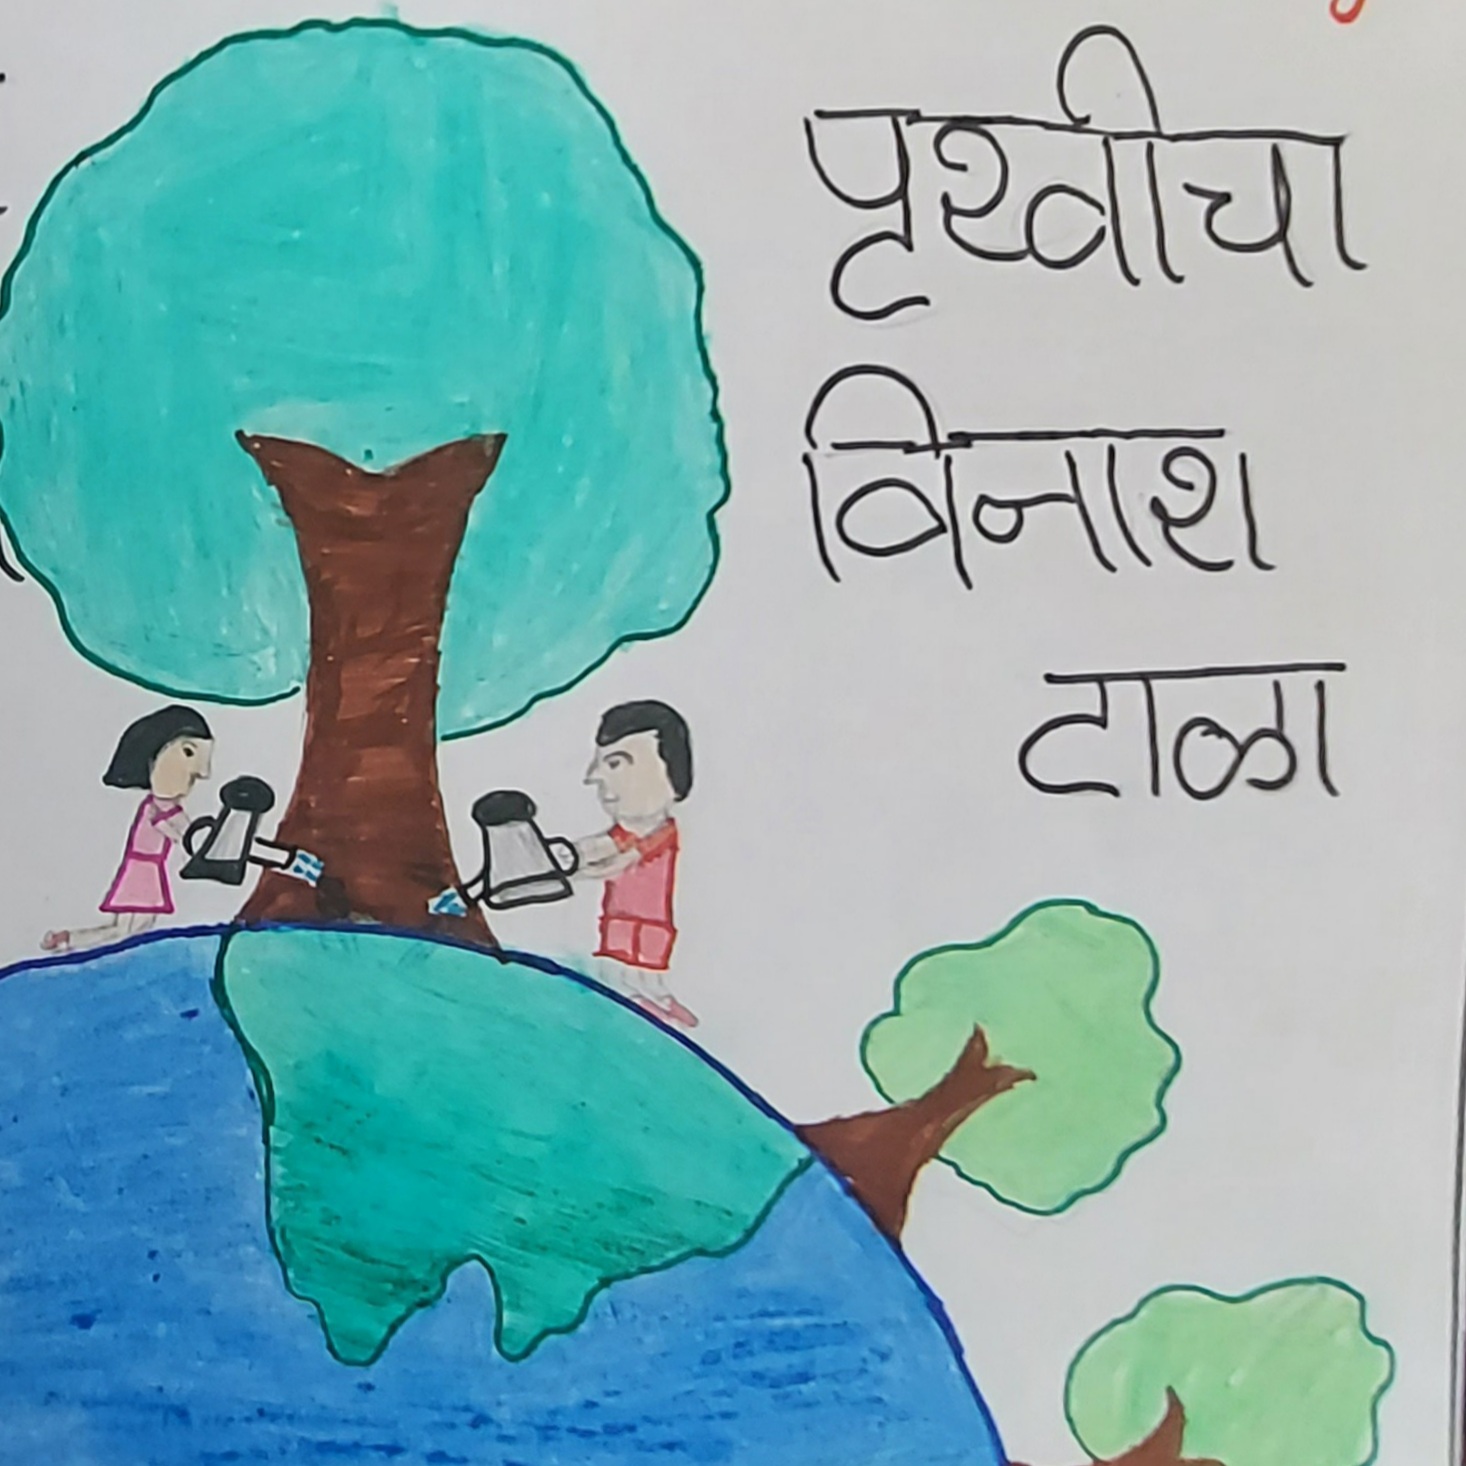 पृथ्वीचा
विनाश
टाळा